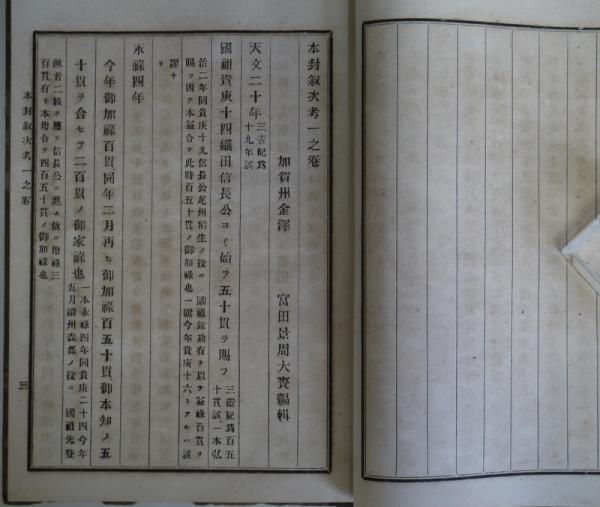 本封叙次考一之卷
加賀州金澤　富田景周大賚編輯
天文二十年三壺記爲十九年誤
國祖貴庚十四織田信長公ヨリ始テ五十貫ヲ賜フ三壺記爲百五十貫誤一本弘
治二年同貴庚十九信長公尾州稻生ノ役ニ　國祖銃功有ヲ以テ益祿百貫ヲ
賜フ因テ本益合テ此時百五十貫ノ御加祿也一說今年貴庚十六トアルハ誤
謬ナリ
永祿四年
今年御加祿百貫同年二月再ヒ御加祿百五十貫御本知ノ五
十貫ヲ合セテ二百貫ノ御家祿也一本永祿四年同貴庚二十四今年五月濃州森部ノ役ニ　國祖先登
敵首二級ヲ獲テ信長公ニ進ム故ニ增祿三
百貫有リ本增合テ四百五十貫ノ御加祿也
本封叙次考一之卷
三